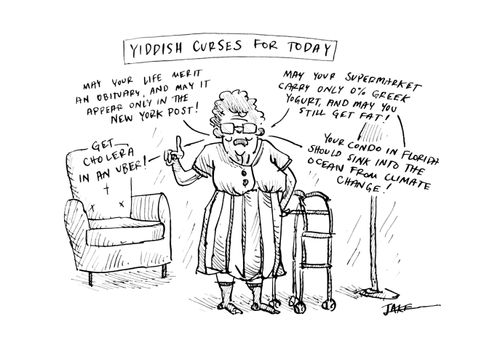 YIDDISH CURSES FOR TODAY
MAY YOUR LIFE MERIT
AN OBITUARY, AND MAY IT
APPEAR ONLY IN THE
NEW YORK POST!
MAY YOUR SUPERMARKET
CARRY ONLY 0% GREEK
YOGURT, AND MAY YOU
STILL GET FAT!
GET
CHOLERA
IN AN UBER!
YOUR CONDO IN FLORIDA
SHOULD SINK INTO THE
OCEAN FROM CLIMATE
CHANGE!
JAKE